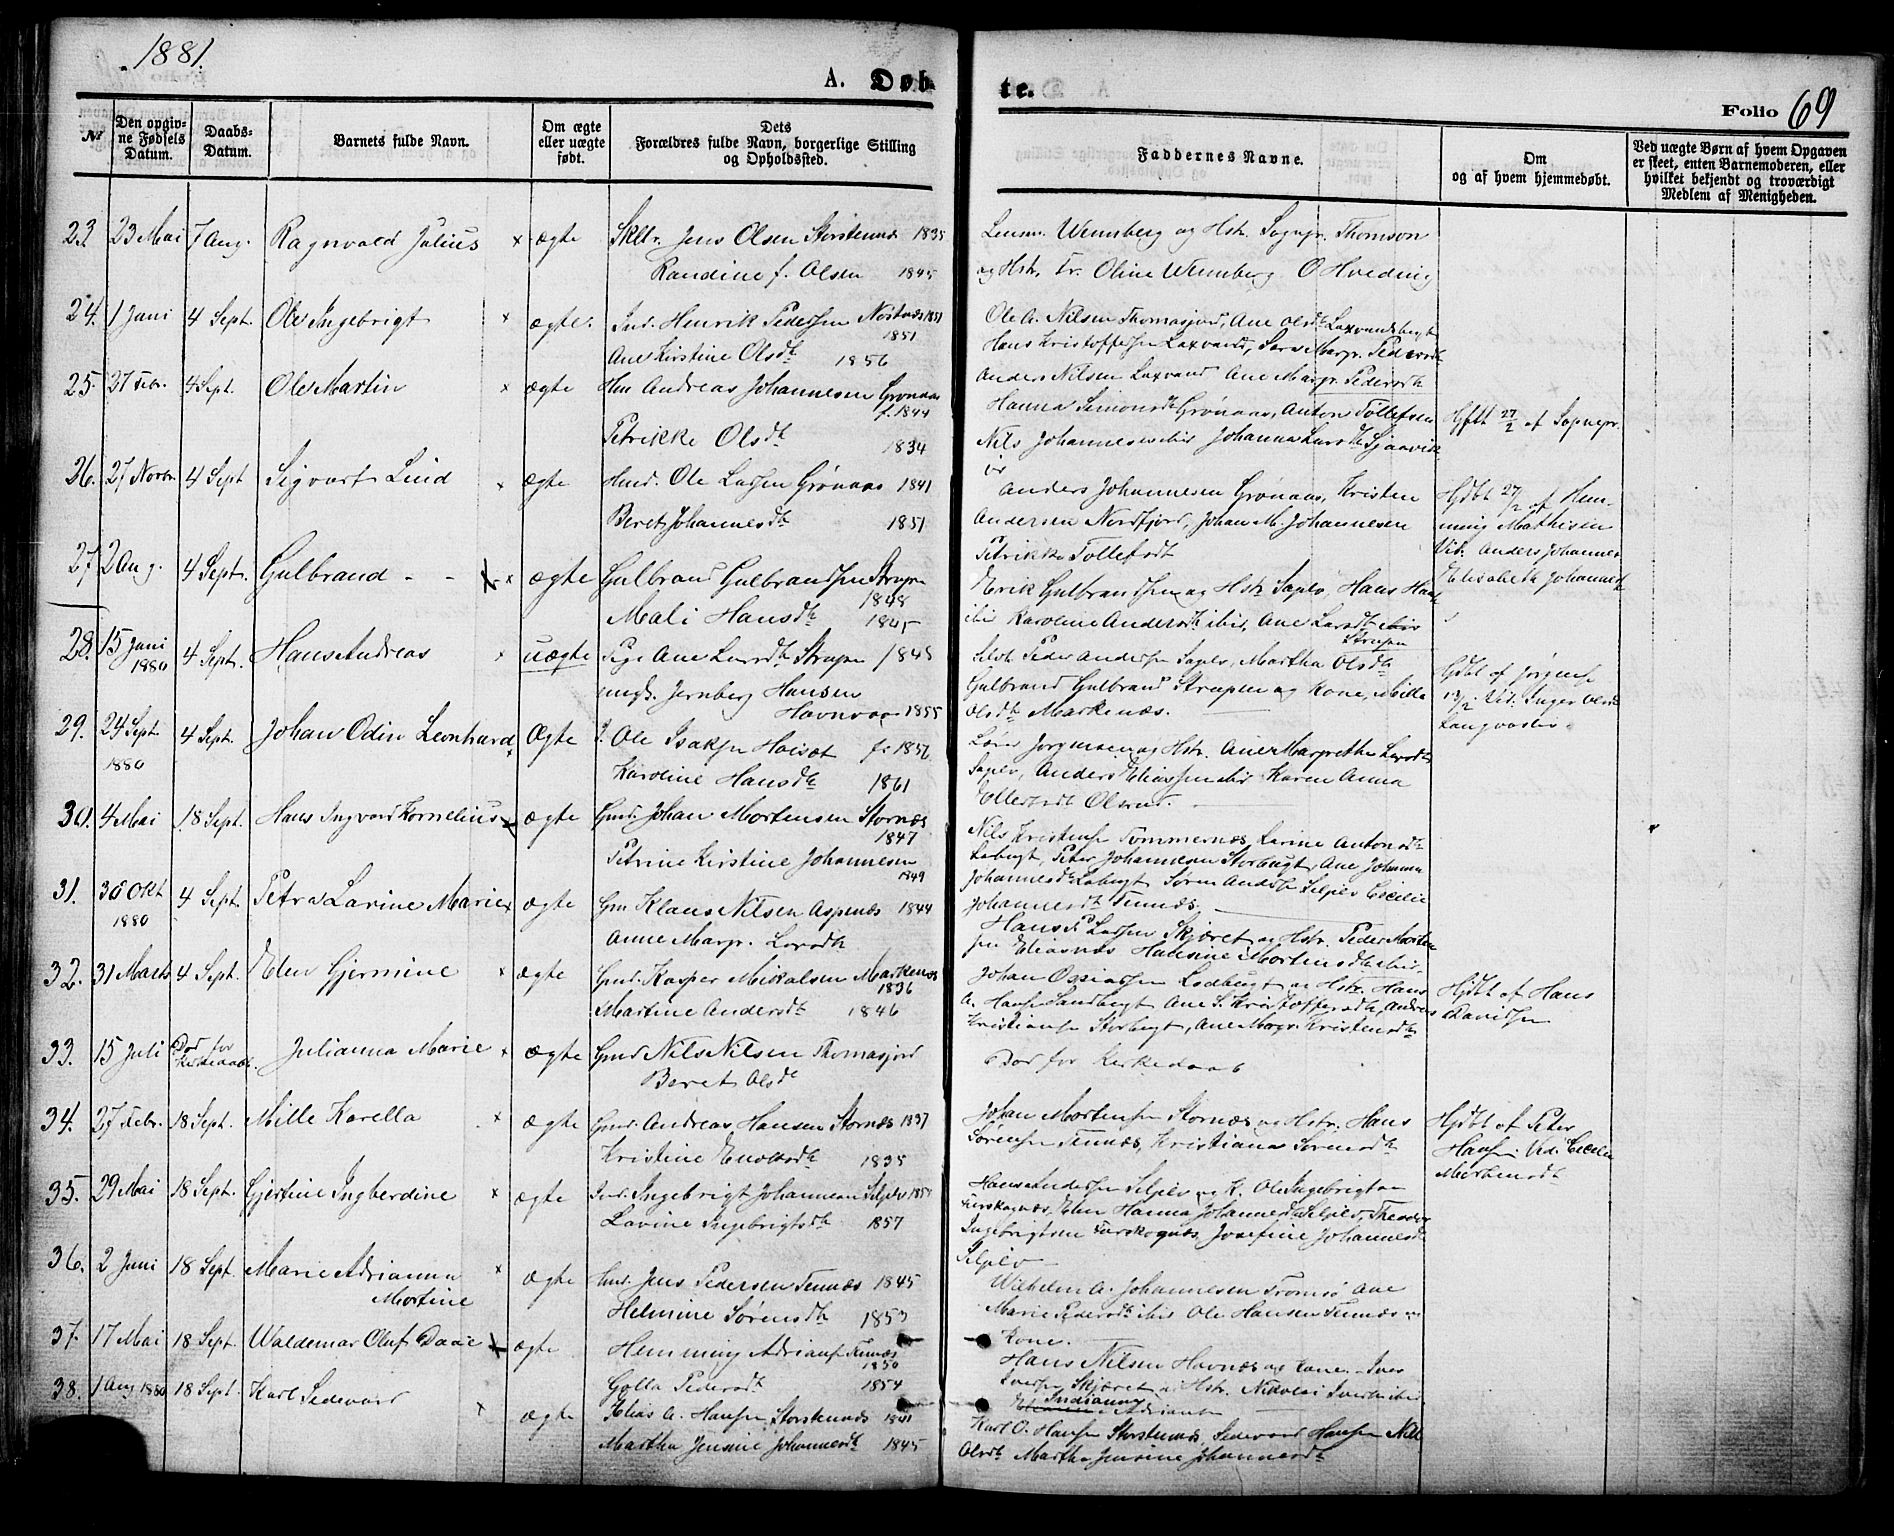 1881.
A. Døb-
te.
Folio 69
№
Den opgiv-
ne Fødsels
Datum.
Daabs-
Datum.
Barnets fulde Navn.
Om ægte
eller uægte
født.
Dets
Forældres fulde Navn, borgerlige Stilling
og Opholdssted.
Faddernes Navne.
Om
og af hvem hjemmedøbt.
Ved uægte Børn af hvem Opgaven
er skeet, enten Barnemoderen, eller
hvilket bekjendt og troværdigt
Medlem af Menigheden.
23. 23 Mai 7 Aug. Ragnvald Julius × ægte Jens Olsen Storstennæs 1835
Randine f. Olsen 1845
Lensm. Wennberg og Hstr. Sognpr. Thomson
og Hstr. Fr. Oline Wennberg O Hveding
24. 1 Juni 4 Sept. Ole Ingebrigt × ægte. Ind. Henrik Pedersen 1851
1851
Ane Kirstine Olsdt 1856
Ole A. Nilsen Thomasjord, Ane Olsdt
Hans Kristoffersen Laxvand, Sara Margr. Pedersdt
Anders Nilsen Laxvand Ane Margr. Pedersdt
25. 27 Febr. 4 Sept. Ole Martin × ægte Andreas Johannesen Grønaas
f. 1844
Petrikke Olsdt 1834
Hanna Simonsdt Grønaas, Anton Tollefsen
Nils Johannesen ibid Johanna Larsdt
Hjdbt 27/2 af Sognepr.
26. 27 Novbr. 4 Sept Sigvart Lind × ægte Ole Larsen Grønaas 1841
Beret Johannesdt 1851
Anders Johannesen Grønaas, Kristen
Andersen Nordfjord, Johan M. Johannesen
Petrikke Tollefsdt
Hjdbt 27/2 af Hem-
ming Mathisen
Vid. Anders Johannes
Elisabeth Johannesdt
27. 2 Aug. 4 Sept. Gulbrand - - × ægte Gulbrand Gulbrandsen Strupen
1848
Mali Hansdt 1845
Erik Gulbrandsen og Hstr Sagelv, Hans Hans
ibid Karoline Andersdt ibid, Ane Larsdt
Strupen
28. 15 Juni 4 Sept. Hans Andreas × uægte Pige Ane Larsdt Strupen 1848
1880
ungk. Jernberg Hansen
Havnvaa 1855
Selvb Peder Andersen Sagelv, Martha Olsdt
Gulbrand Gulbrands Strupen og Kone, Milla
Olsdt Markenæs.
Hjdbt af Jørgens
Vid. Inger Olsdt
29. 24 Sept. 4 Sept. Johan Odin Leonhard × Ægte Ole Isaksen f. 1856
1880
Karoline Hansdt 1861
Jørgensen og Hstr. Ane Margrethe Larsdt
Sagelv, Anders Eliassen ibid Karen Anna
Ellertsdt
30. 4 Mai 18 Sept. Hans Ingvard Kornelius × ægte Gmd. Johan Mortensen Stornæs
1847
Petrine Kirstine Johannesen
1849
Nils Kristensen Tommernæs Karine Antonsdt
Peter Johannesen Storbugt, Ane Johanna
Johannesdt Søren Selelv Cecilie
Johannesdt Tennæs.
31. 30 Okt 4 Sept. Petra Lavine Marie × ægte Gm Klaus Nilsen Aspenæs 1844
1880
Anne Margr. Larsdt
Hans P Larsen Skjæret og Hstr. Peder Morten
sen Eliasnæs Hansine Mortensdt ibid.
32. 31 Marts 4 Sept. Elen Gjermine × ægte Gmd. Kasper Mikalsen Markenæs
1836
Martine Andersdt 1846
Johan Ossiassen og Hstr. Hans
A. Hansen Sandbugt Ane S. Kristoffersdt, Andreas
Kristiansen Storbugt, Ane Margr. Kristensdt
Hjdbt af Hans
Davidsen
33. 15 Juli Død for
Kirkedaab. Julianna Marie × ægte Gmd Nils Nilsen Thomasjord
Beret Olsdt
Død for Kirkedaab
34. 27 Febr. 18 Sept. Mille Karella × ægte Gmd. Andreas Hansen Stornæs 1837
Kristine Enoksdt 1835
Johan Mortensen Stornæs og Hstr. Hans
Sørensen Tennæs, Kristiana Sørensdt
Hjdbt af Peter
Hansen Vid. Cecilie
Mortensdt
35. 29 Mai 18 Sept. Gjertine Ingberdine × ægte Ind. Ingebrigt Johannesen Selelv
Lavine Ingebrigtsdt 1857
Hans Andersen Selelv og K. Ole Ingebrigtsen
Furskognæs, Elen Hanna Johannesdt Selelv, Theodor
Ingebrigtsen Furskognæs Josefine Johannesdt
Selelv
36. 2 Juni 18 Sept. Marie Adrianna × ægte Jens Pedersen Tennæs 1845
Mortine
Helmine Sørensdt 1853
Wilhelm A. Johannesen Tromsø Ane
Marie Pedersdt ibid Ole Hansen Tennæs og
Kone.
37. 17 Mai 18 Sept. Waldemar Oluf Daae × ægte Hemming Adrians Tennæs
1850
Golla Pedersdt 1854
Hans Nilsen Havnæs og Kone. Iver
Iversen Skjæret og Hstr. Nikolai Iversen ibid
Indianna
Adrians
38. 1 Aug 1880 18 Sept. Karl Sedevard × ægte Elias A. Hansen Storstennæs 1841
Martha Jensine Johannesdt 1845
Karl O. Hansen Storstennæs, Sedevard Hansen Nils
Olsdt Martha Jensine Johannesdt